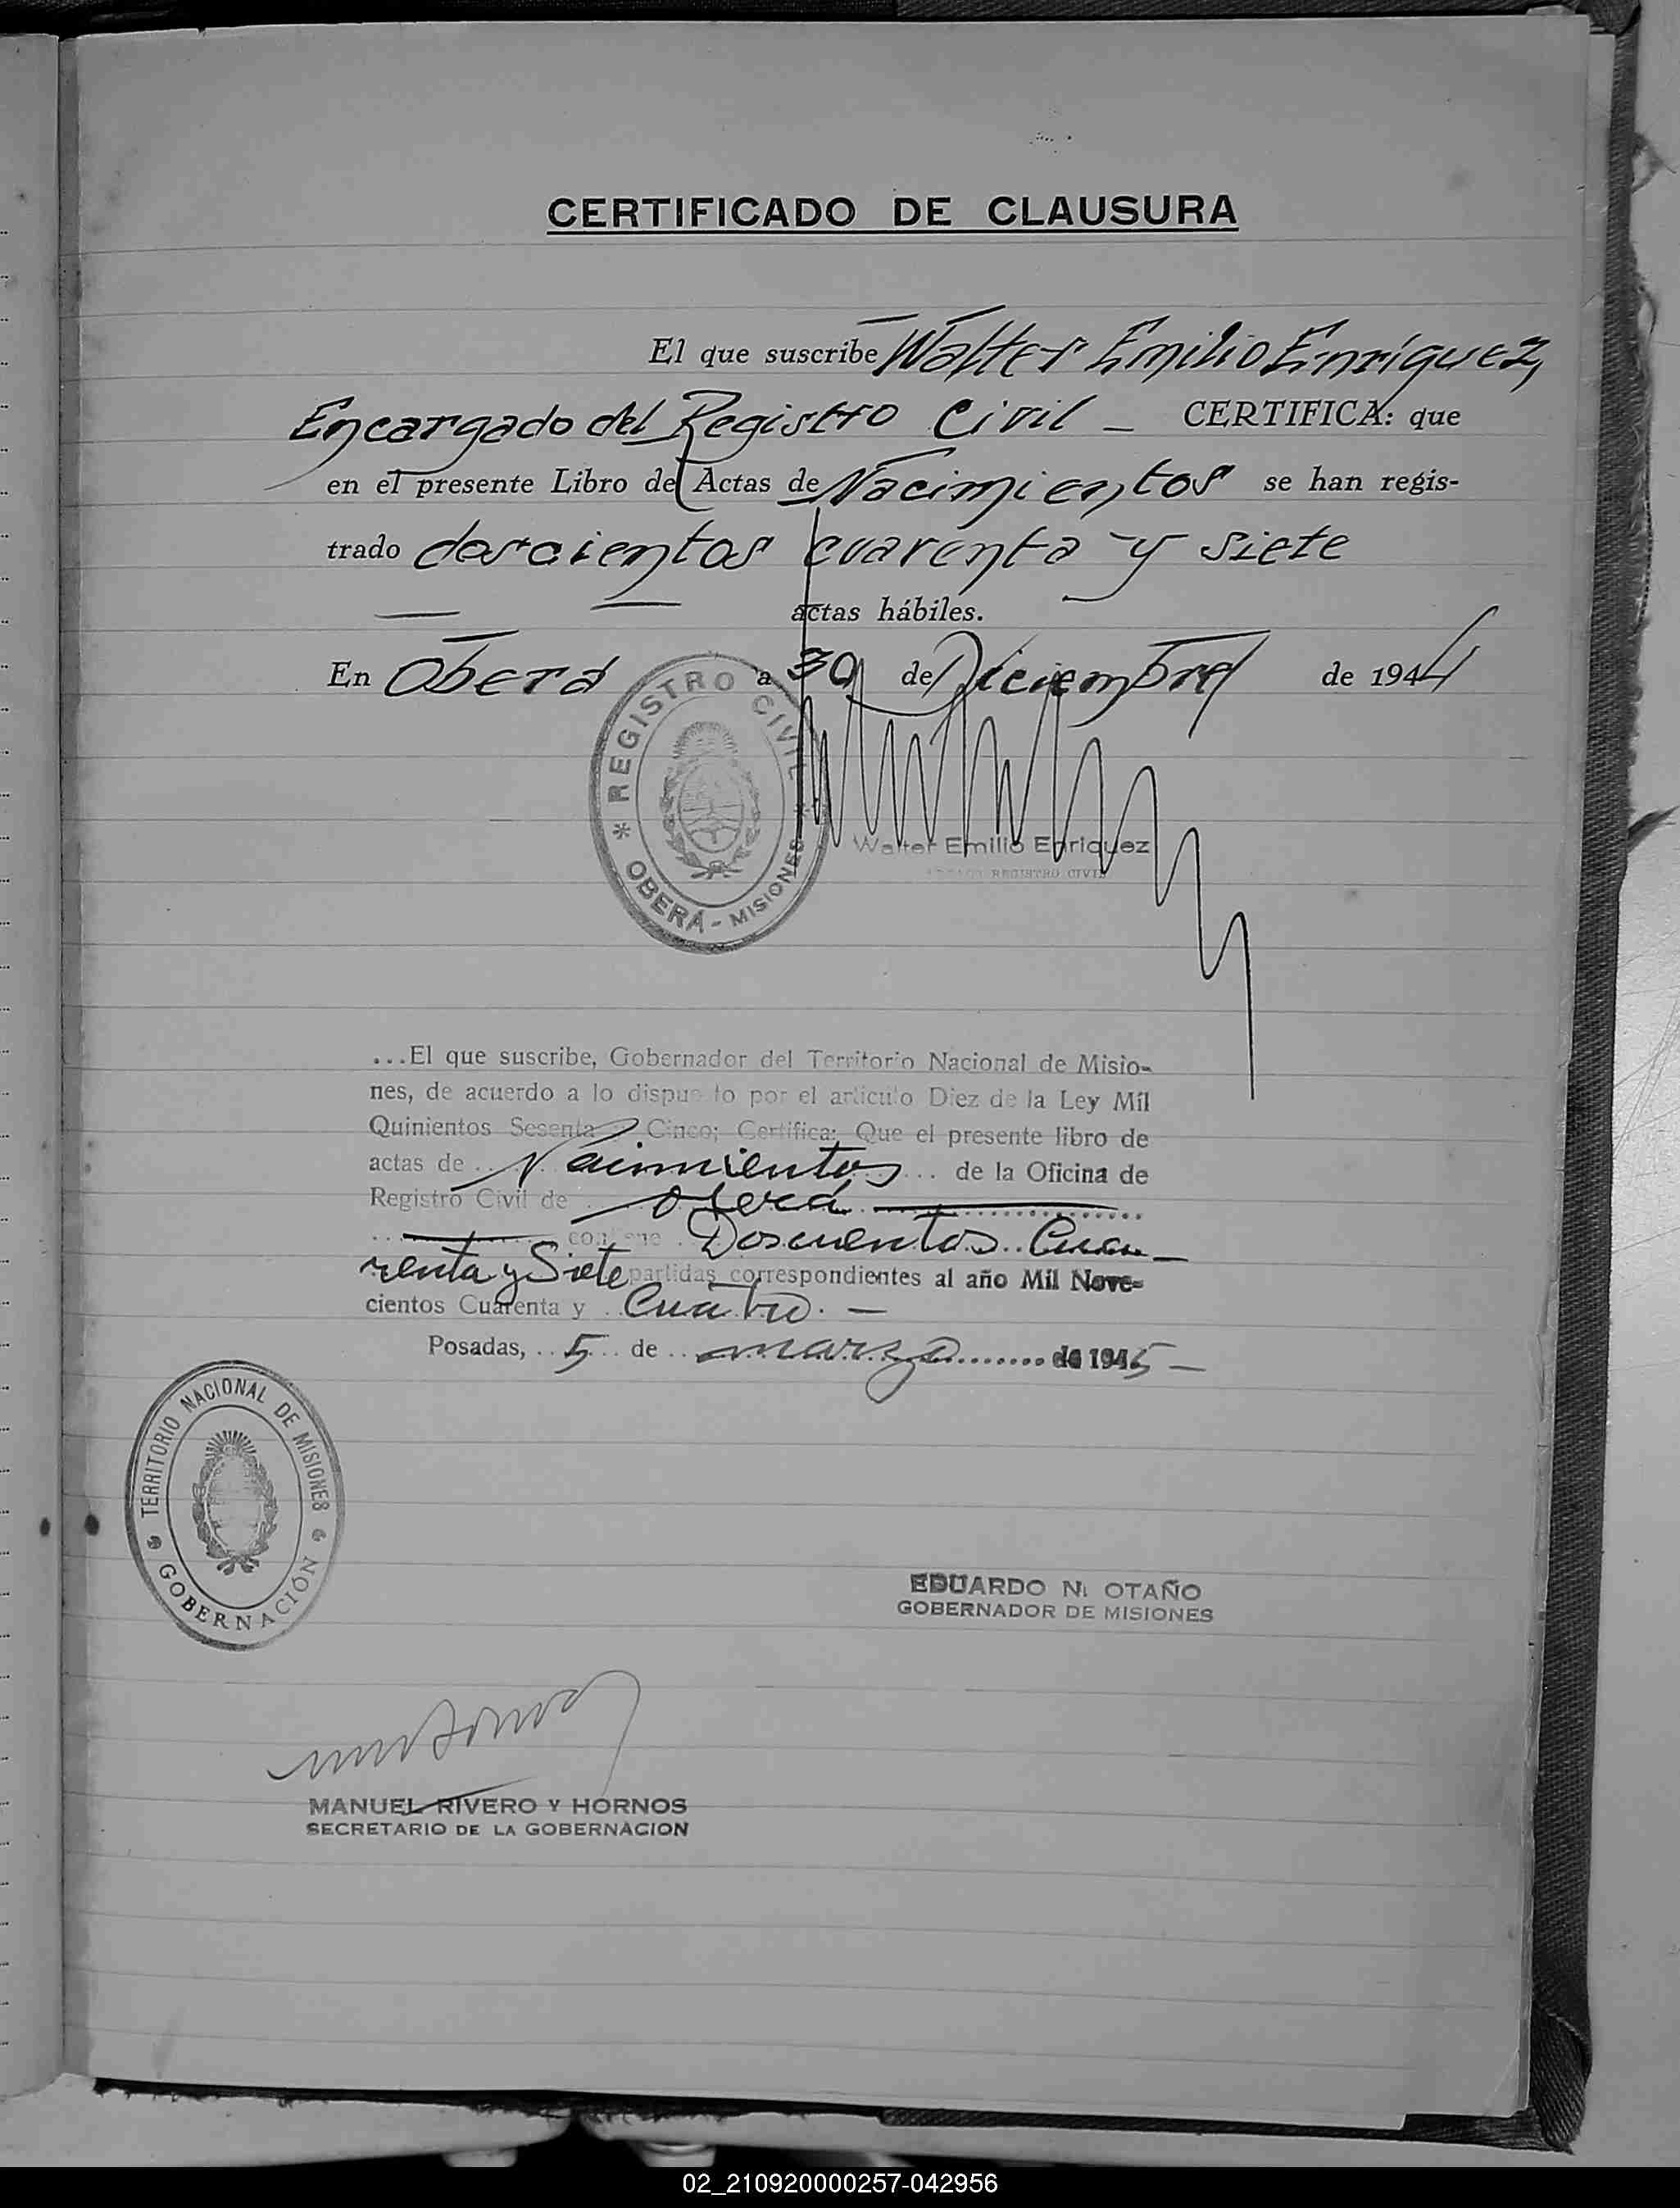 CERTIFICADO DE CLAUSURA
El que suscribe Walter Emilio Enríquez,
Encargado del Registro Civil — CERTIFICA: que
en el presente Libro de Actas de Nacimientos se han regis-
trado doscientos cuarenta y siete
actas hábiles.
En Oberá a 30 de Diciembre de 1944
* REGISTRO CIVIL *
OBERÁ - MISIONES
Walter Emilio Enriquez
REGISTRO CIVIL
...El que suscribe, Gobernador del Territorio Nacional de Misio-
nes, de acuerdo a lo dispuesto por el artículo Diez de la Ley Mil
Quinientos Sesenta y Cinco; Certifica: Que el presente libro de
actas de Nacimientos de la Oficina de
Registro Civil de Oberá
contiene Doscientos Cua-
renta y Siete partidas correspondientes al año Mil Nove-
cientos Cuarenta y Cuatro. —
Posadas, 5 de marzo de 1945 —
TERRITORIO NACIONAL DE MISIONES
GOBERNACIÓN
EDUARDO N. OTAÑO
GOBERNADOR DE MISIONES
MANUEL RIVERO Y HORNOS
SECRETARIO DE LA GOBERNACION
02_210920000257-042956